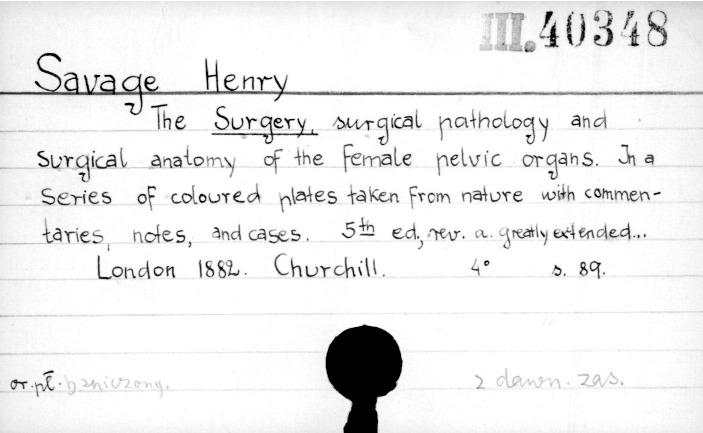 III.40348
Savage Henry
The Surgery, surgical pathology and
surgical anatomy of the female pelvic organs. In a
series of coloured plates taken from nature with commen-
taries, notes, and cases. 5th ed., rev. a. greatly extended...
London 1882. Churchill. 4° s. 89.
or. pł.
z dawn. zas.